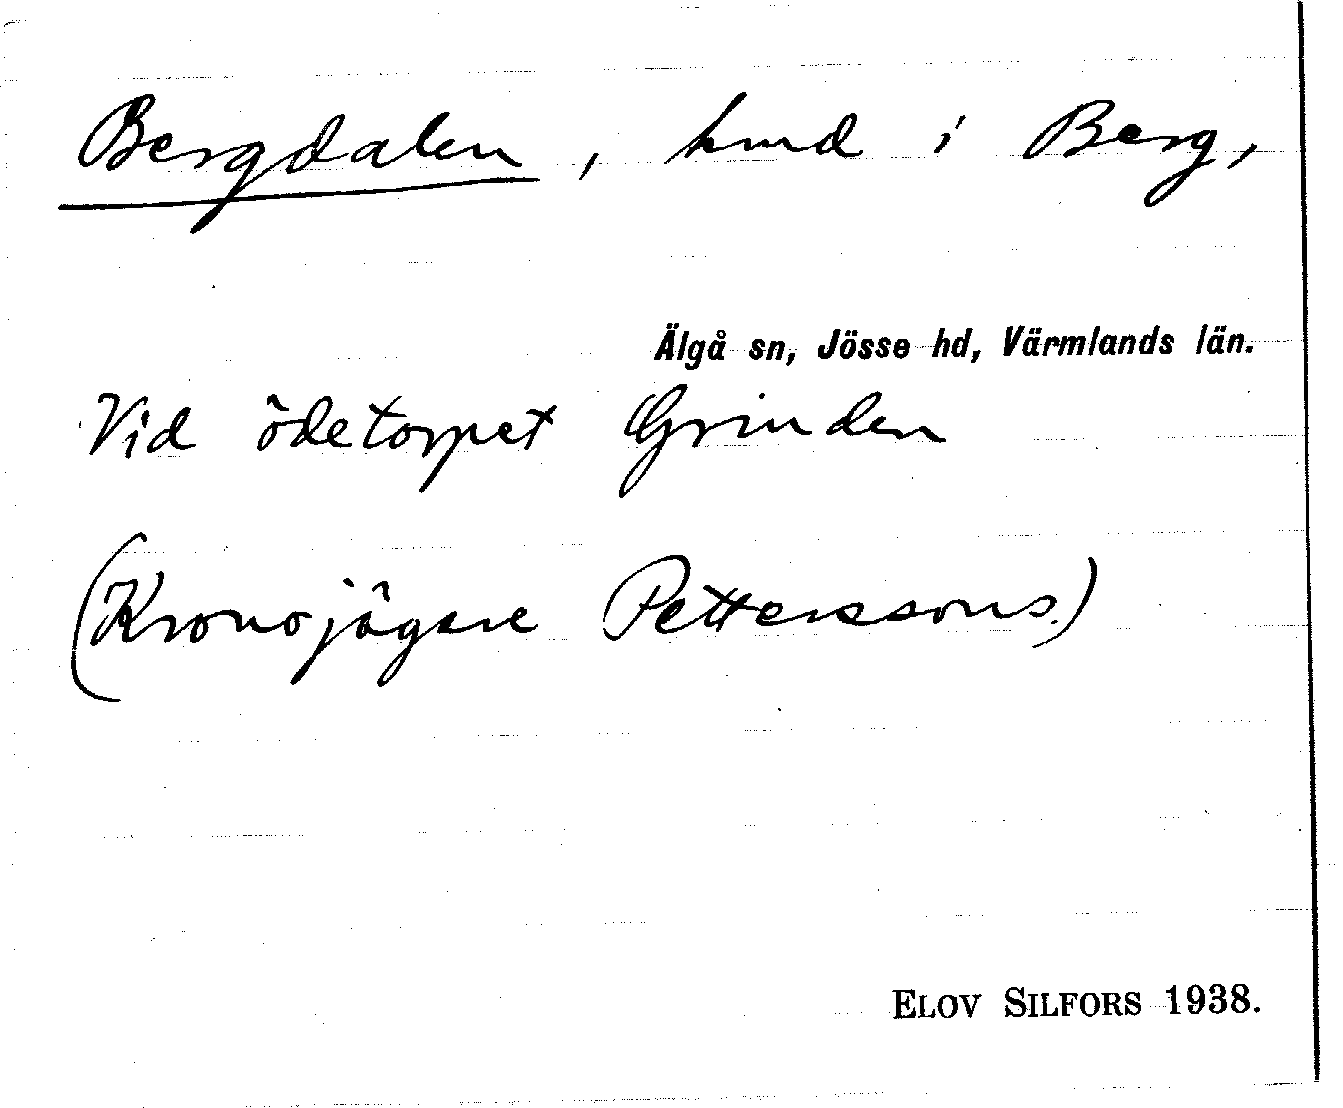 Bergdalen, hmd i Berg,
Älgå sn, Jösse hd, Värmlands län.
Vid ödetorpet Grinden
(Kronojägare Petterssons.)
ELOV SILFORS 1938.